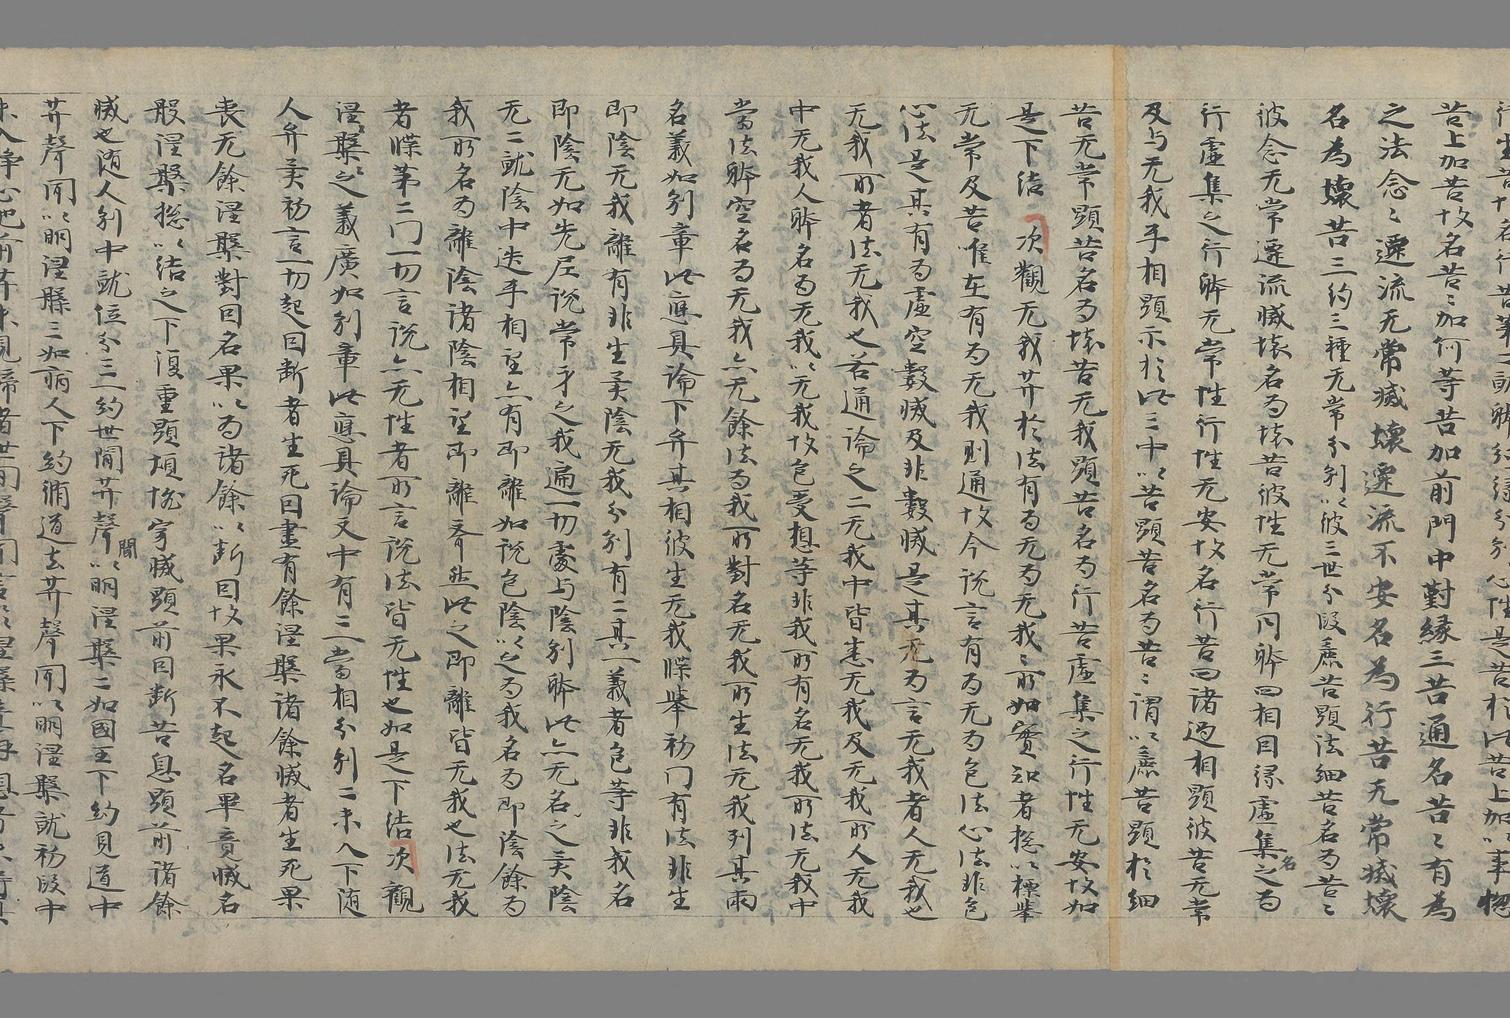 苦上加苦故名苦〻加何等苦加前門中對緣三苦通名苦〻有為
之法念〻遷流无常滅壞遷流不安名為行苦无常滅壞
名為壞苦三約三種无常分別以彼三世分段麁苦顯法細苦名為苦〻
彼念无常遷流滅壞名為壞苦彼性无常同躰四相因緣虛集名之為
行虛集之行躰无常性行性无安故名行苦四諸過相顯彼苦无常
及与无我手相顯示於此三中以苦顯苦名為苦〻謂以麁苦顯於細
苦无常顯苦名為壞苦无我顯苦名為行苦虛集之行性无安故如
是下結 次觀无我并於法有為无為无我〻所如實知者揔以標舉
无常及苦唯在有為无我則通故今說言有為无為色法心法非色
心法是其有為虛空數滅及非數滅是其无為言无我者人无我也
无我所者法无我也若通論之二无我中皆悉无我及无我所人无我
中无我人躰名為无我以无我故色受想等非我所有名无我所法无我中
當法躰空名為无我亦无餘法為我所對名无我所生法无我列其兩
名義如別章此應具論下弁其相彼生无我牒舉初門有法非生
即陰无我離有非生異陰无我分別有二其一義者色等非我名
即陰无如先尼說常身之我遍一切處与陰別躰此亦无名之異陰
无二就陰中迭手相望亦有即離如說色陰以之為我名為即陰餘為
我所名為離陰諸陰相望即離斉然此之即離皆无我也法无我
者牒第二門一切言說亦无性者所言說法皆无性也如是下結 次觀
涅槃之義廣如別章此應具論文中有三當相分別二未入下隨
人弁異初言一切起因斷者生死因盡有餘涅槃諸餘滅者生死果
喪无餘涅槃對因名果以為諸餘以斷因故果永不起名畢竟滅名
般涅槃揔以結之下復重顯煩惱寂滅顯前因斷苦息顯前諸餘
滅也随人別中就位分三一約世間菩聲聞以明涅槃二如國王下約見道中
菩聲聞以明涅槃三如病人下約脩道去菩聲聞以明涅槃就初段中